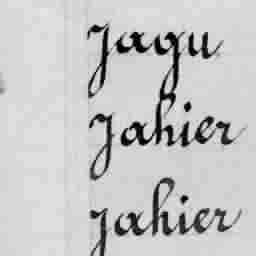 Jagu
Jahier
Jahier